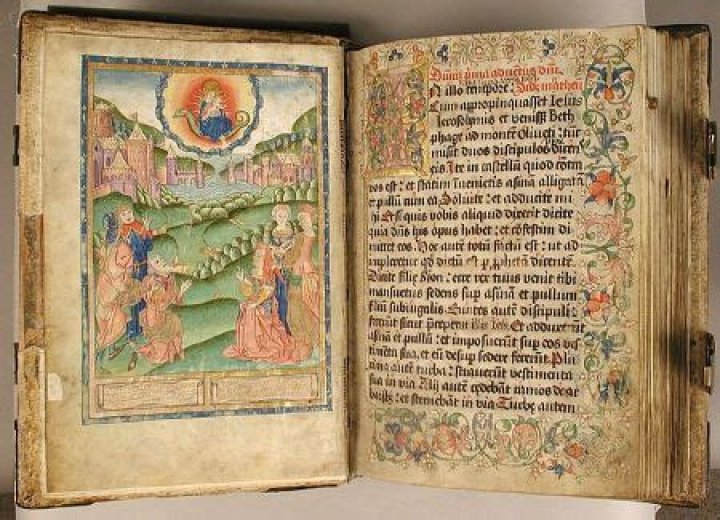 Dominica prima adventus dni.
In illo tempore: Scdm matheū
Cum apropinquasset Iesus
Ierosolimis et venisset Beth
phage ad montē Oliveti: tūc
misit duos discipulos dicens
eis Ite in castellū quod contra
vos est: et statim Invenietis asinā alligatā
et pullū cum ea Solvite: et adducite mi
hi Et si quis vobis aliquid dixerit dicite
quia dn̄s his opus habet: et cōfestim di
mittet eos Hoc autē totū factū est: ut ad
impleretur qd dictū est p prophetā dicentē
Dicite filie Syon: ecce rex tuus venit tibi
mansuetus sedens sup asinā et pullum
filiū subiugalis. Euntes autē discipuli
fecerūt sicut precepit illis Iesus. Et adduxerūt
asinā et pullū: et imposuerūt sup eos ve
stimēta sua, et eū desup sedere fecerūt. Plu
rima autē turba: straverūt vestimenta
sua in via Alij autē cedebāt ramos de ar
boribꝫ: et sternebāt in via Turbe autem